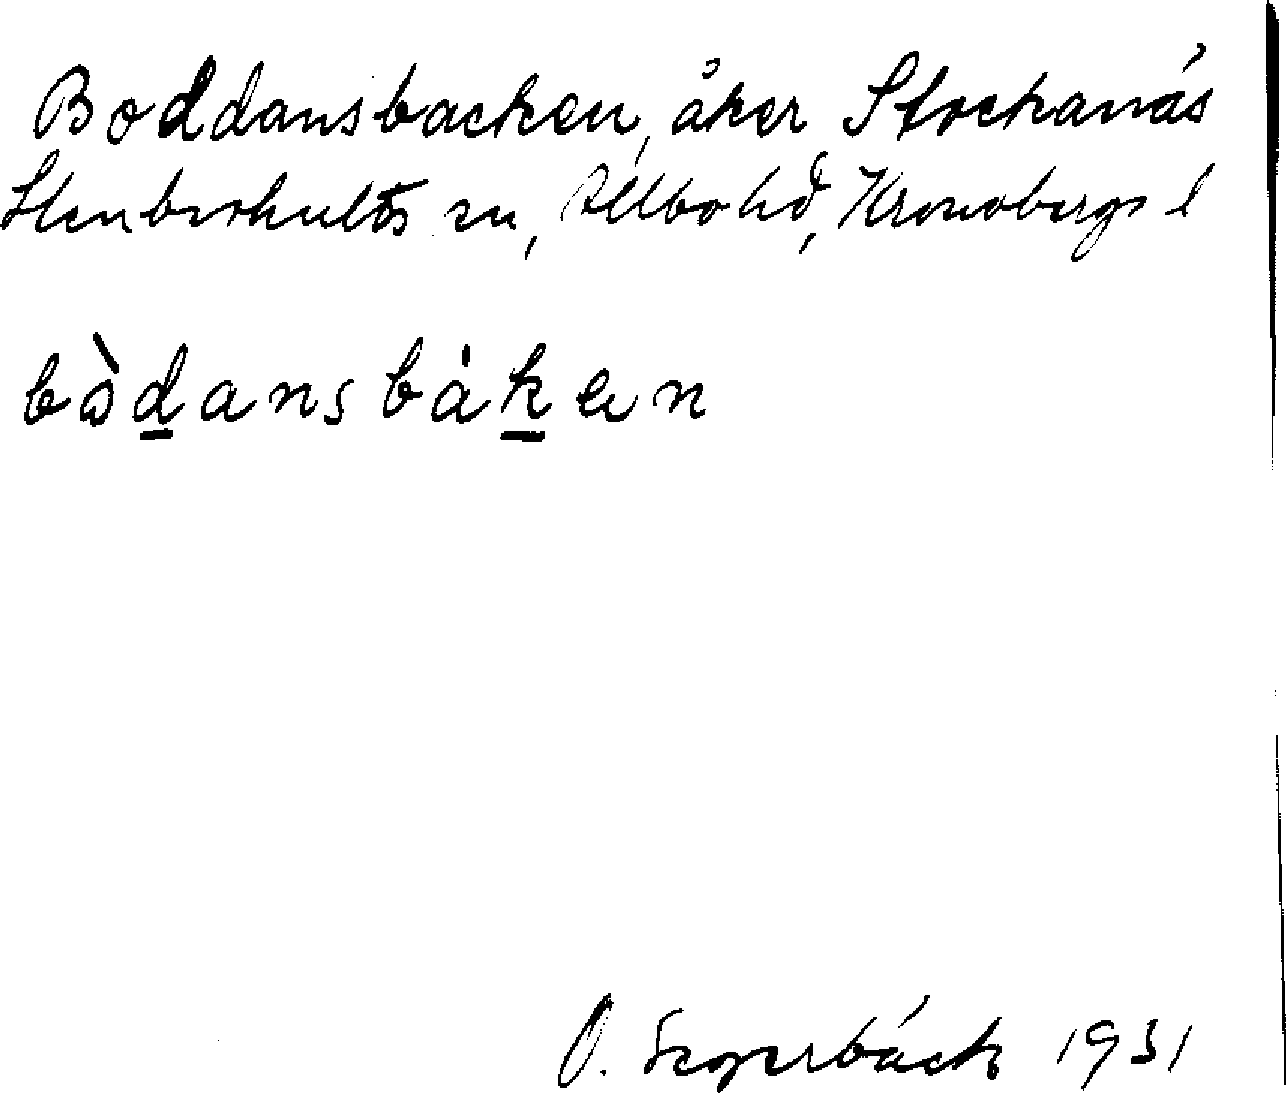 Boddansbacken, åker Stockanäs
Stenbrohults sn, Allbo hd, Kronobergs l
bòd̲ansbák̲en
O. Segerbäck 1931